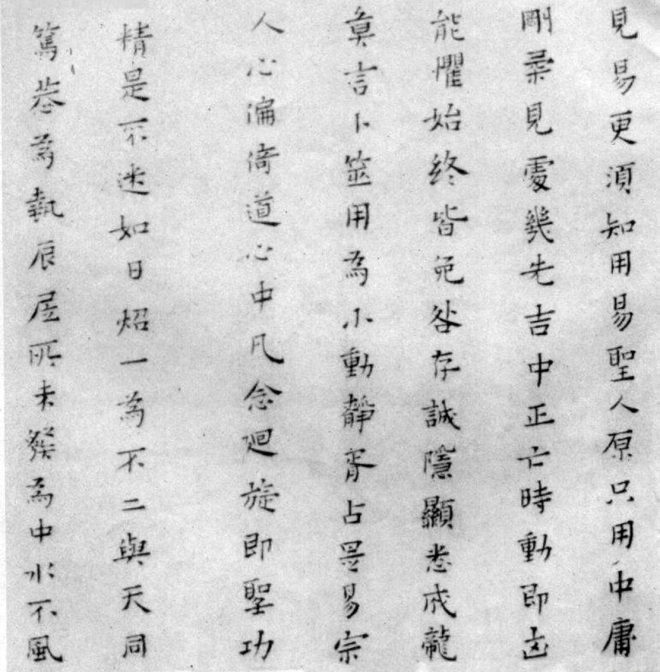 見易更須知用易聖人原只用中庸
剛柔見處幾先吉中正亡時動即凶
能懼始終皆免咎存誠隱顯悉成龍
莫言卜筮用為小動靜胥占是易宗
人心偏倚道心中凡念廻旋即聖功
精是不迷如日炤一為不二與天同
篤恭為執辰居所未發為中水不風